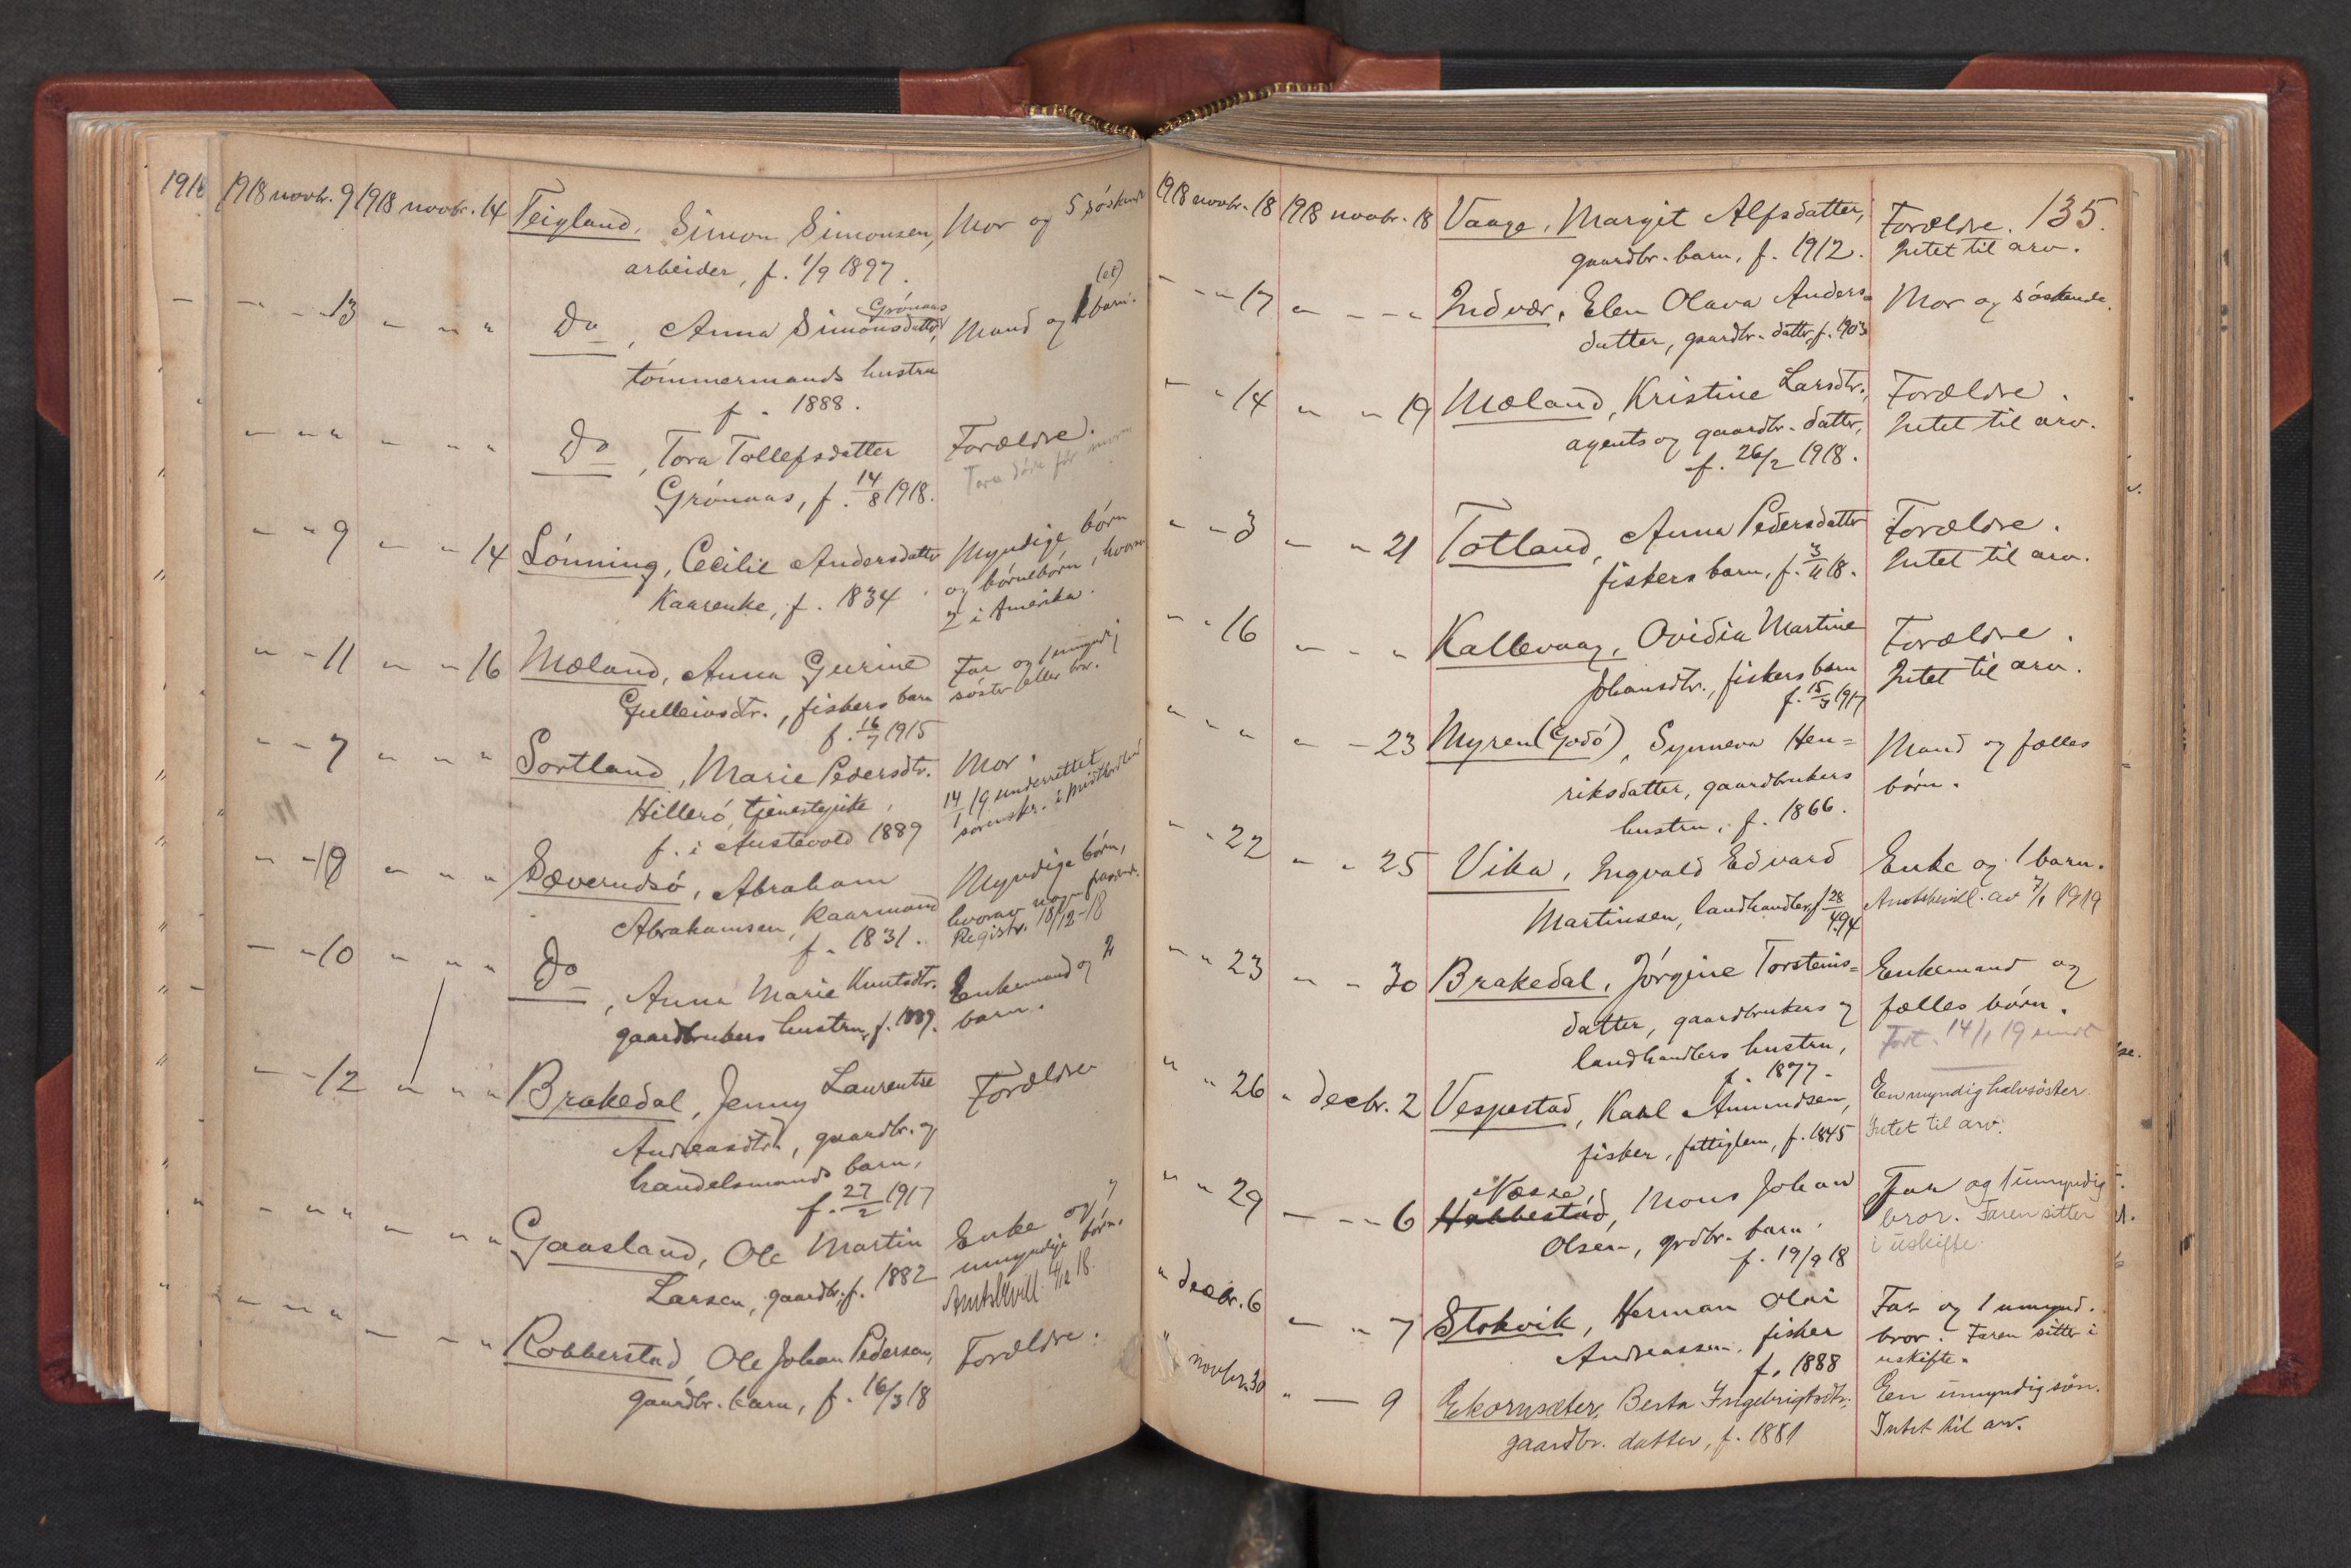 1918
1918 novbr. 9 1918 novbr. 14 Teigland, Simon Simonsen, Mor og 5 søskend
arbeider, f. 1/9 1897.
" " 13 " " " Do, Anna Simonsdatter Grönaas, Mand og 1 (et) barn.
tömmermands hustru
f. 1888.
" " " " " " Do, Tora Tollefsdatter Forældre.
Grönaas, f. 14/8 1918. Tora døde før moren
" " 9 " " 14 Lönning, Cecilie Andersdatter Myndige börn
Kaarenke, f. 1834. og börnebörn, hvorav
2 i Amerika.
" " 11 " " 16 Mæland, Anna Gurine Far og 1 umyndig
Gulleivsdtr., fiskers barn söster eller bror.
f. 16/7 1915
" " 7 " " " Sortland, Marie Pedersdtr. Mor.
Hillerö, tjenestepike, 14/1 19 underrettet
f. i Austevold 1889 sorenskr. i Midthordland
" " 18 " " " Sæverudsö, Abraham Myndige börn,
Abrahamsen, Kaarmand hvorav nogen
f. 1831. Registr. 18/12-18
" " 10 " " " Do, Anna Marie Knutsdtr. Enkemand og 2
gaardbrukers hustru, f. 1889. barn.
" " 12 " " " Brakedal, Jenny Laurentse Forældre
Andreasdtr., gaardbr. og
handelsmands barn,
f. 27/2 1917
" " " " " " Gaasland, Ole Martin Enke og 7
Larsen, gaardbr. f. 1882 umyndige börn.
Amtsbevill. 4/12 18.
" " " " " " Robberstad, Ole Johan Pedersen, Forældre.
gaardbr. barn, f. 16/3 18
135.
1918 novbr. 18 1918 novbr. 18 Vaage, Margit Alfsdatter, Forældre.
gaardbr. barn, f. 1912. Intet til arv.
" " 17 " " " Indvær, Elen Olava Anders- Mor og söskende.
datter, gaardbr. datter, f. 1903
" " 14 " " 19 Mæland, Kristine Larsdtr., Forældre.
agents og gaardbr. datter, Intet til arv.
f. 26/2 1918.
" " 3 " " 21 Totland, Anna Pedersdatter Forældre.
fiskers barn, f. 3/11 18. Intet til arv.
" " 16 " " " Kallevaag, Ovidia Martine Forældre.
Johansdtr., fiskers barn Intet til arv.
f. 15/3 1917
" " " " " 23 Myren (Godö), Synneva Hen= Mand og fælles
riksdatter, gaardbrukers börn.
hustru, f. 1866.
" " 22 " " 25 Vika, Ingvald Edvard Enke og 1 barn.
Martinsen, landhandler, f 28/4 94 Amtsbevill. av 7/1 1919
" " 23 " " 30 Brakedal, Jörgine Torsteins= Enkemand og
datter, gaardbrukers og fælles börn.
landhandlers hustru, Fort. 14/1 19 sendt
f. 1877.
" " 26 " decbr. 2 Vespestad, Karl Amundsen, En myndig halvsöster.
fisker, fattiglem, f. 1845 Intet til arv.
" " 29 " " 6 Habbestad Næsse, Mons Johan Far og 1 umyndig
Olsen, grdbr. barn bror. Faren sitter
f. 19/9 18 i uskifte.
" decbr. 6 " " 7 Stokvik, Herman Olai Far og 1 umynd.
Andreassen, fisker bror. Faren sitter i
f. 1888 uskifte.
" novbr. 30 " " 9 Ekornsæter, Berta Ingebrigtsdtr., En umyndig sön.
gaardbr. datter, f. 1881 Intet til arv.